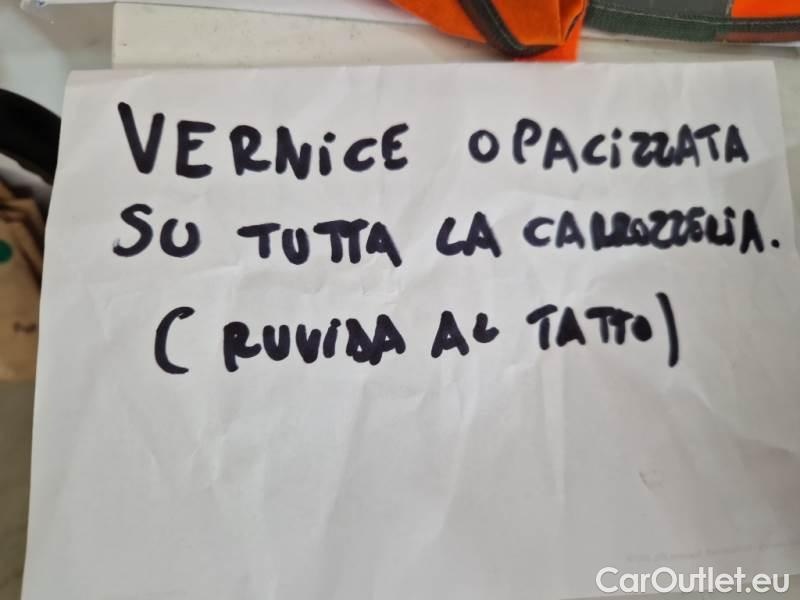 VERNiCE OPACiZZATA
SU TUTTA LA CARROZZERiA.
(RUViDA AL TATTO)
CarOutlet.eu